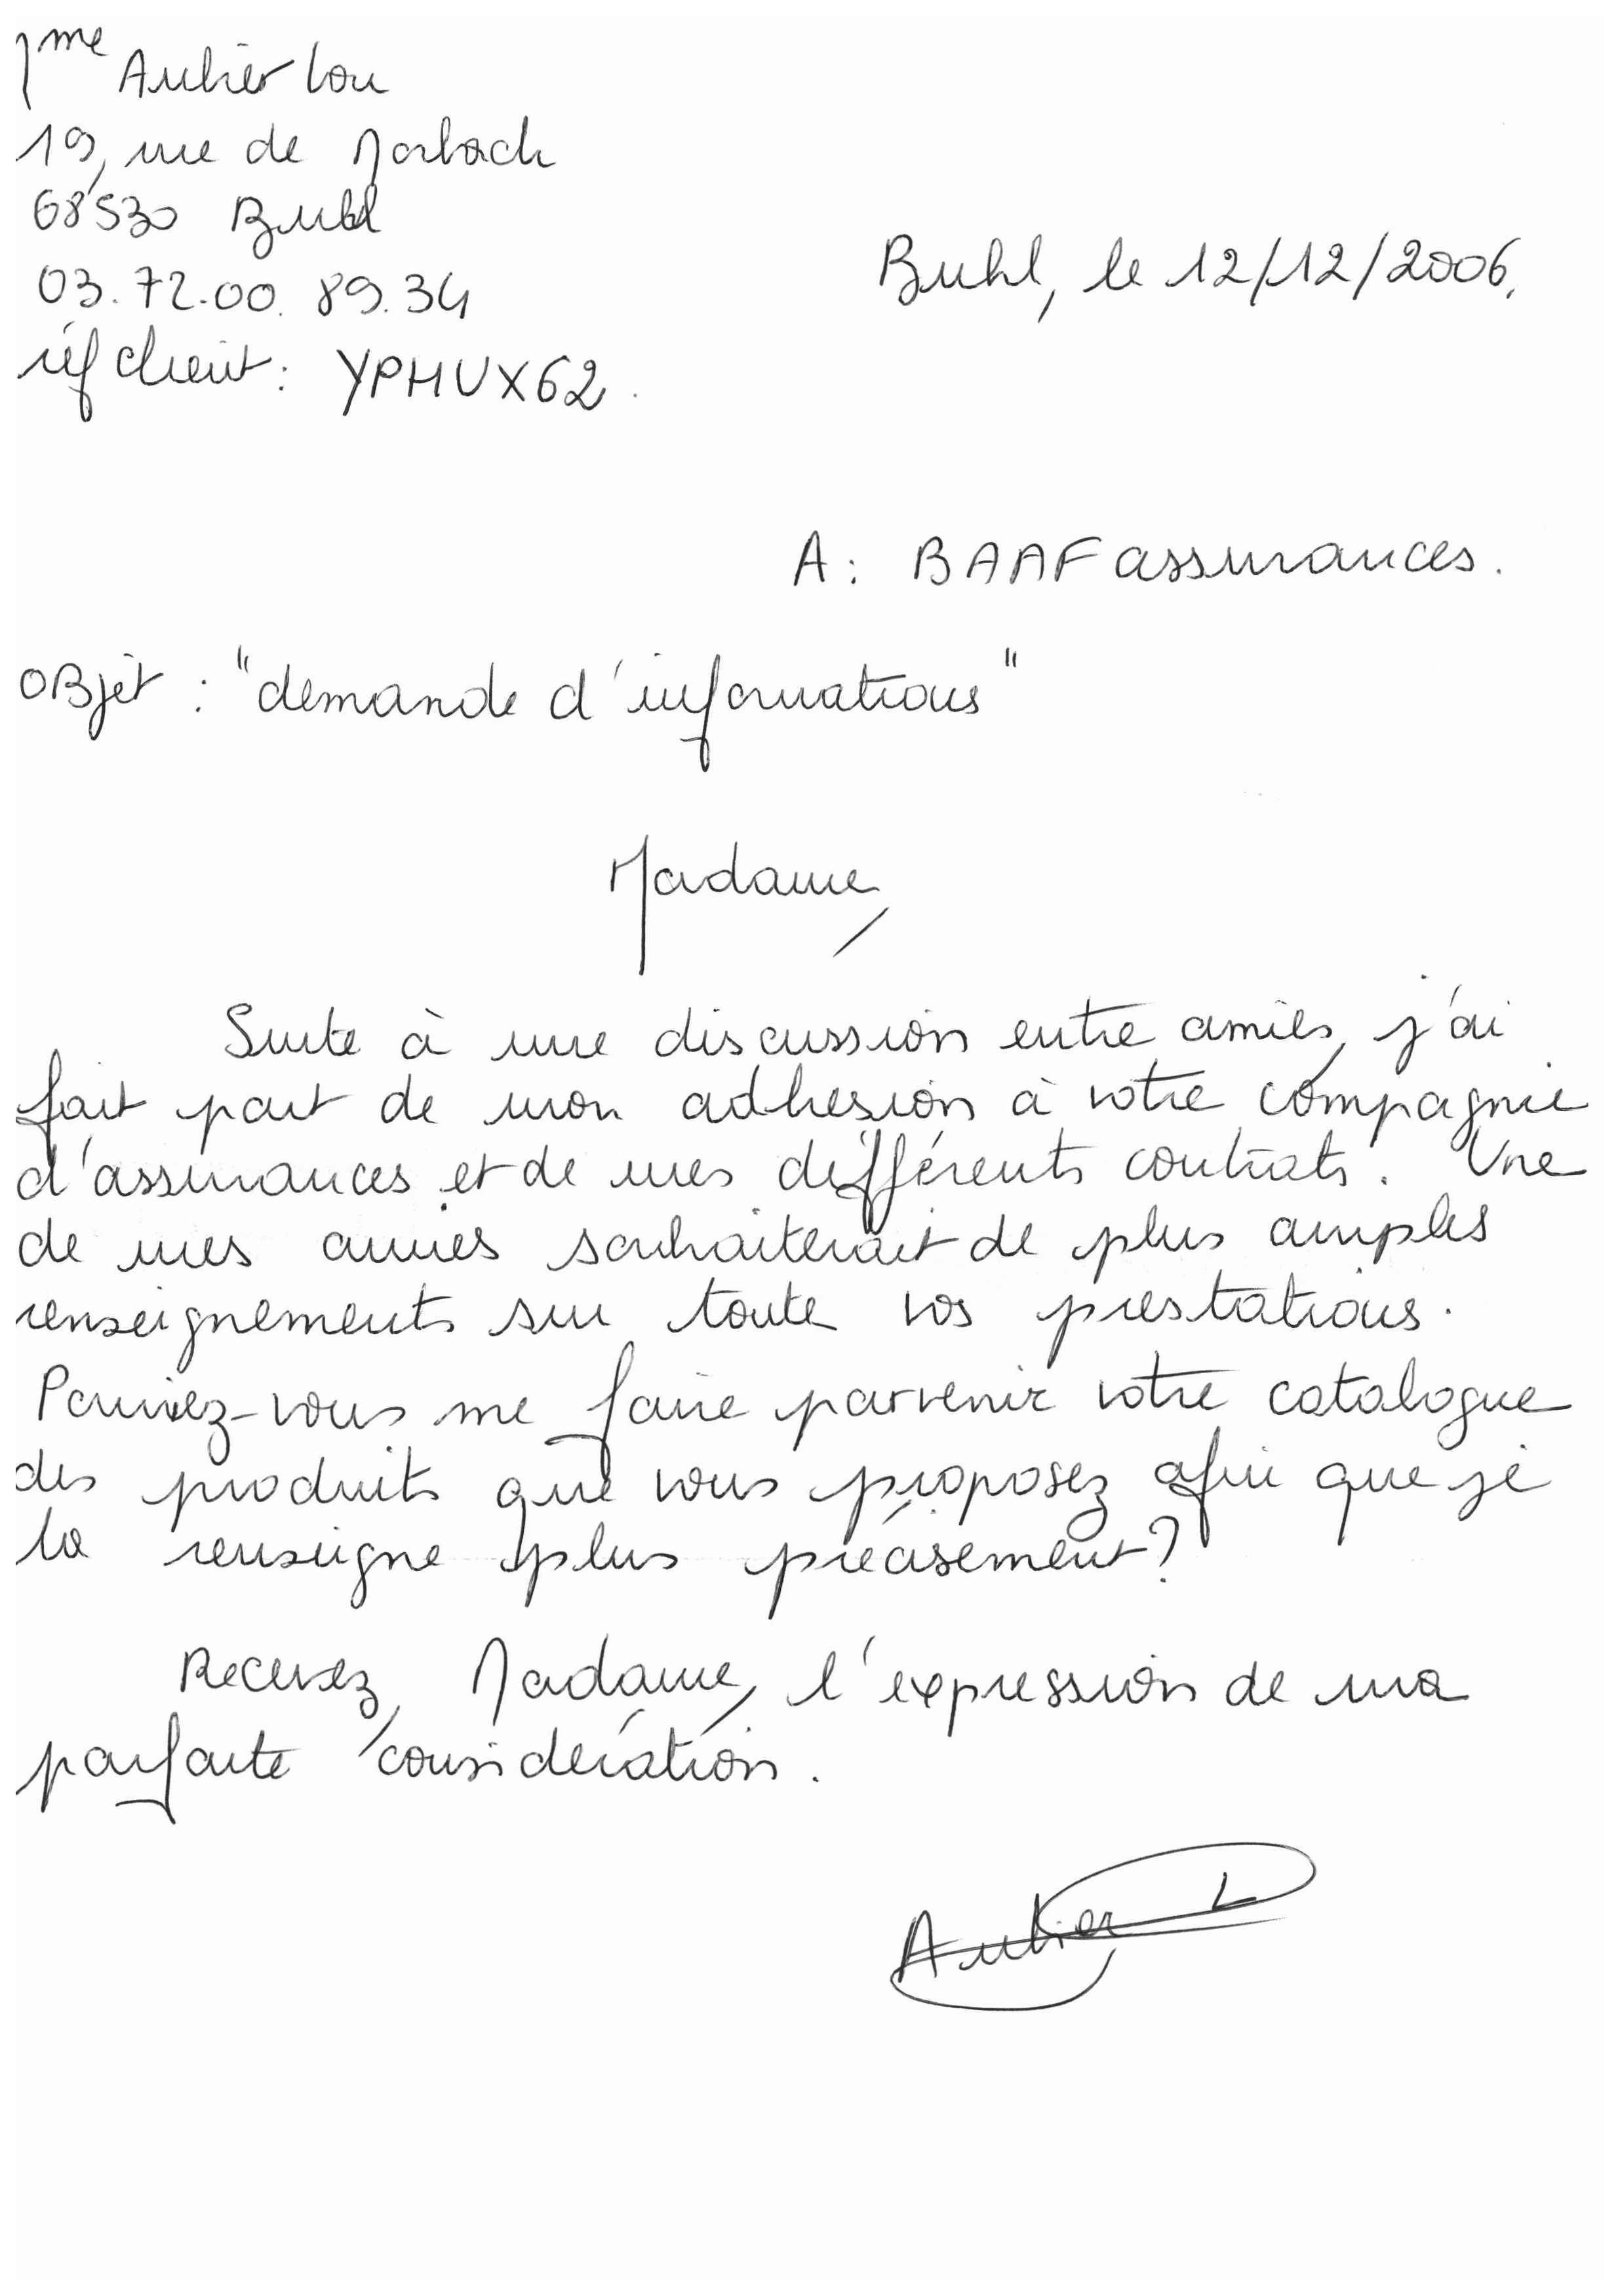 Mme Aubier Lou
19, rue de Morbach
68530 Buhl
03.72.00.89.34
réf client : YPHUX62.
Buhl, le 12/12/2006.
A : BAAF assurances.
OBjet : "demande d'informations"
Madame,
Suite à une discussion entre amies, j'ai
fait part de mon adhésion à votre compagnie
d'assurances et de mes différents contrats. Une
de mes amies souhaiterait de plus amples
renseignements sur toute vos prestations.
Pouriez-vous me faire parvenir votre catalogue
des produits que vous proposez afin que je
la renseigne plus précisement ?
Recevez, Madame, l'expression de ma
parfaite considération.
Aubier L